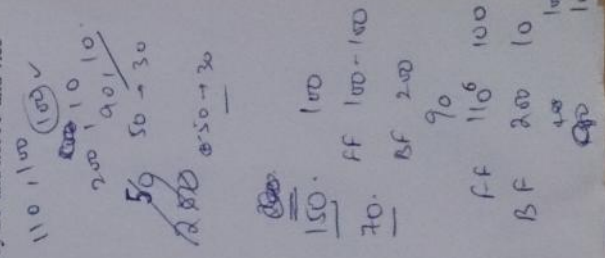 110, 100 100 ✓
10
200, 90, 10.
50 → 30
50
200
50 → 30
100
150.
FF 100-100
70.
BF 200
90
FF 110 6 100
BF 200 10